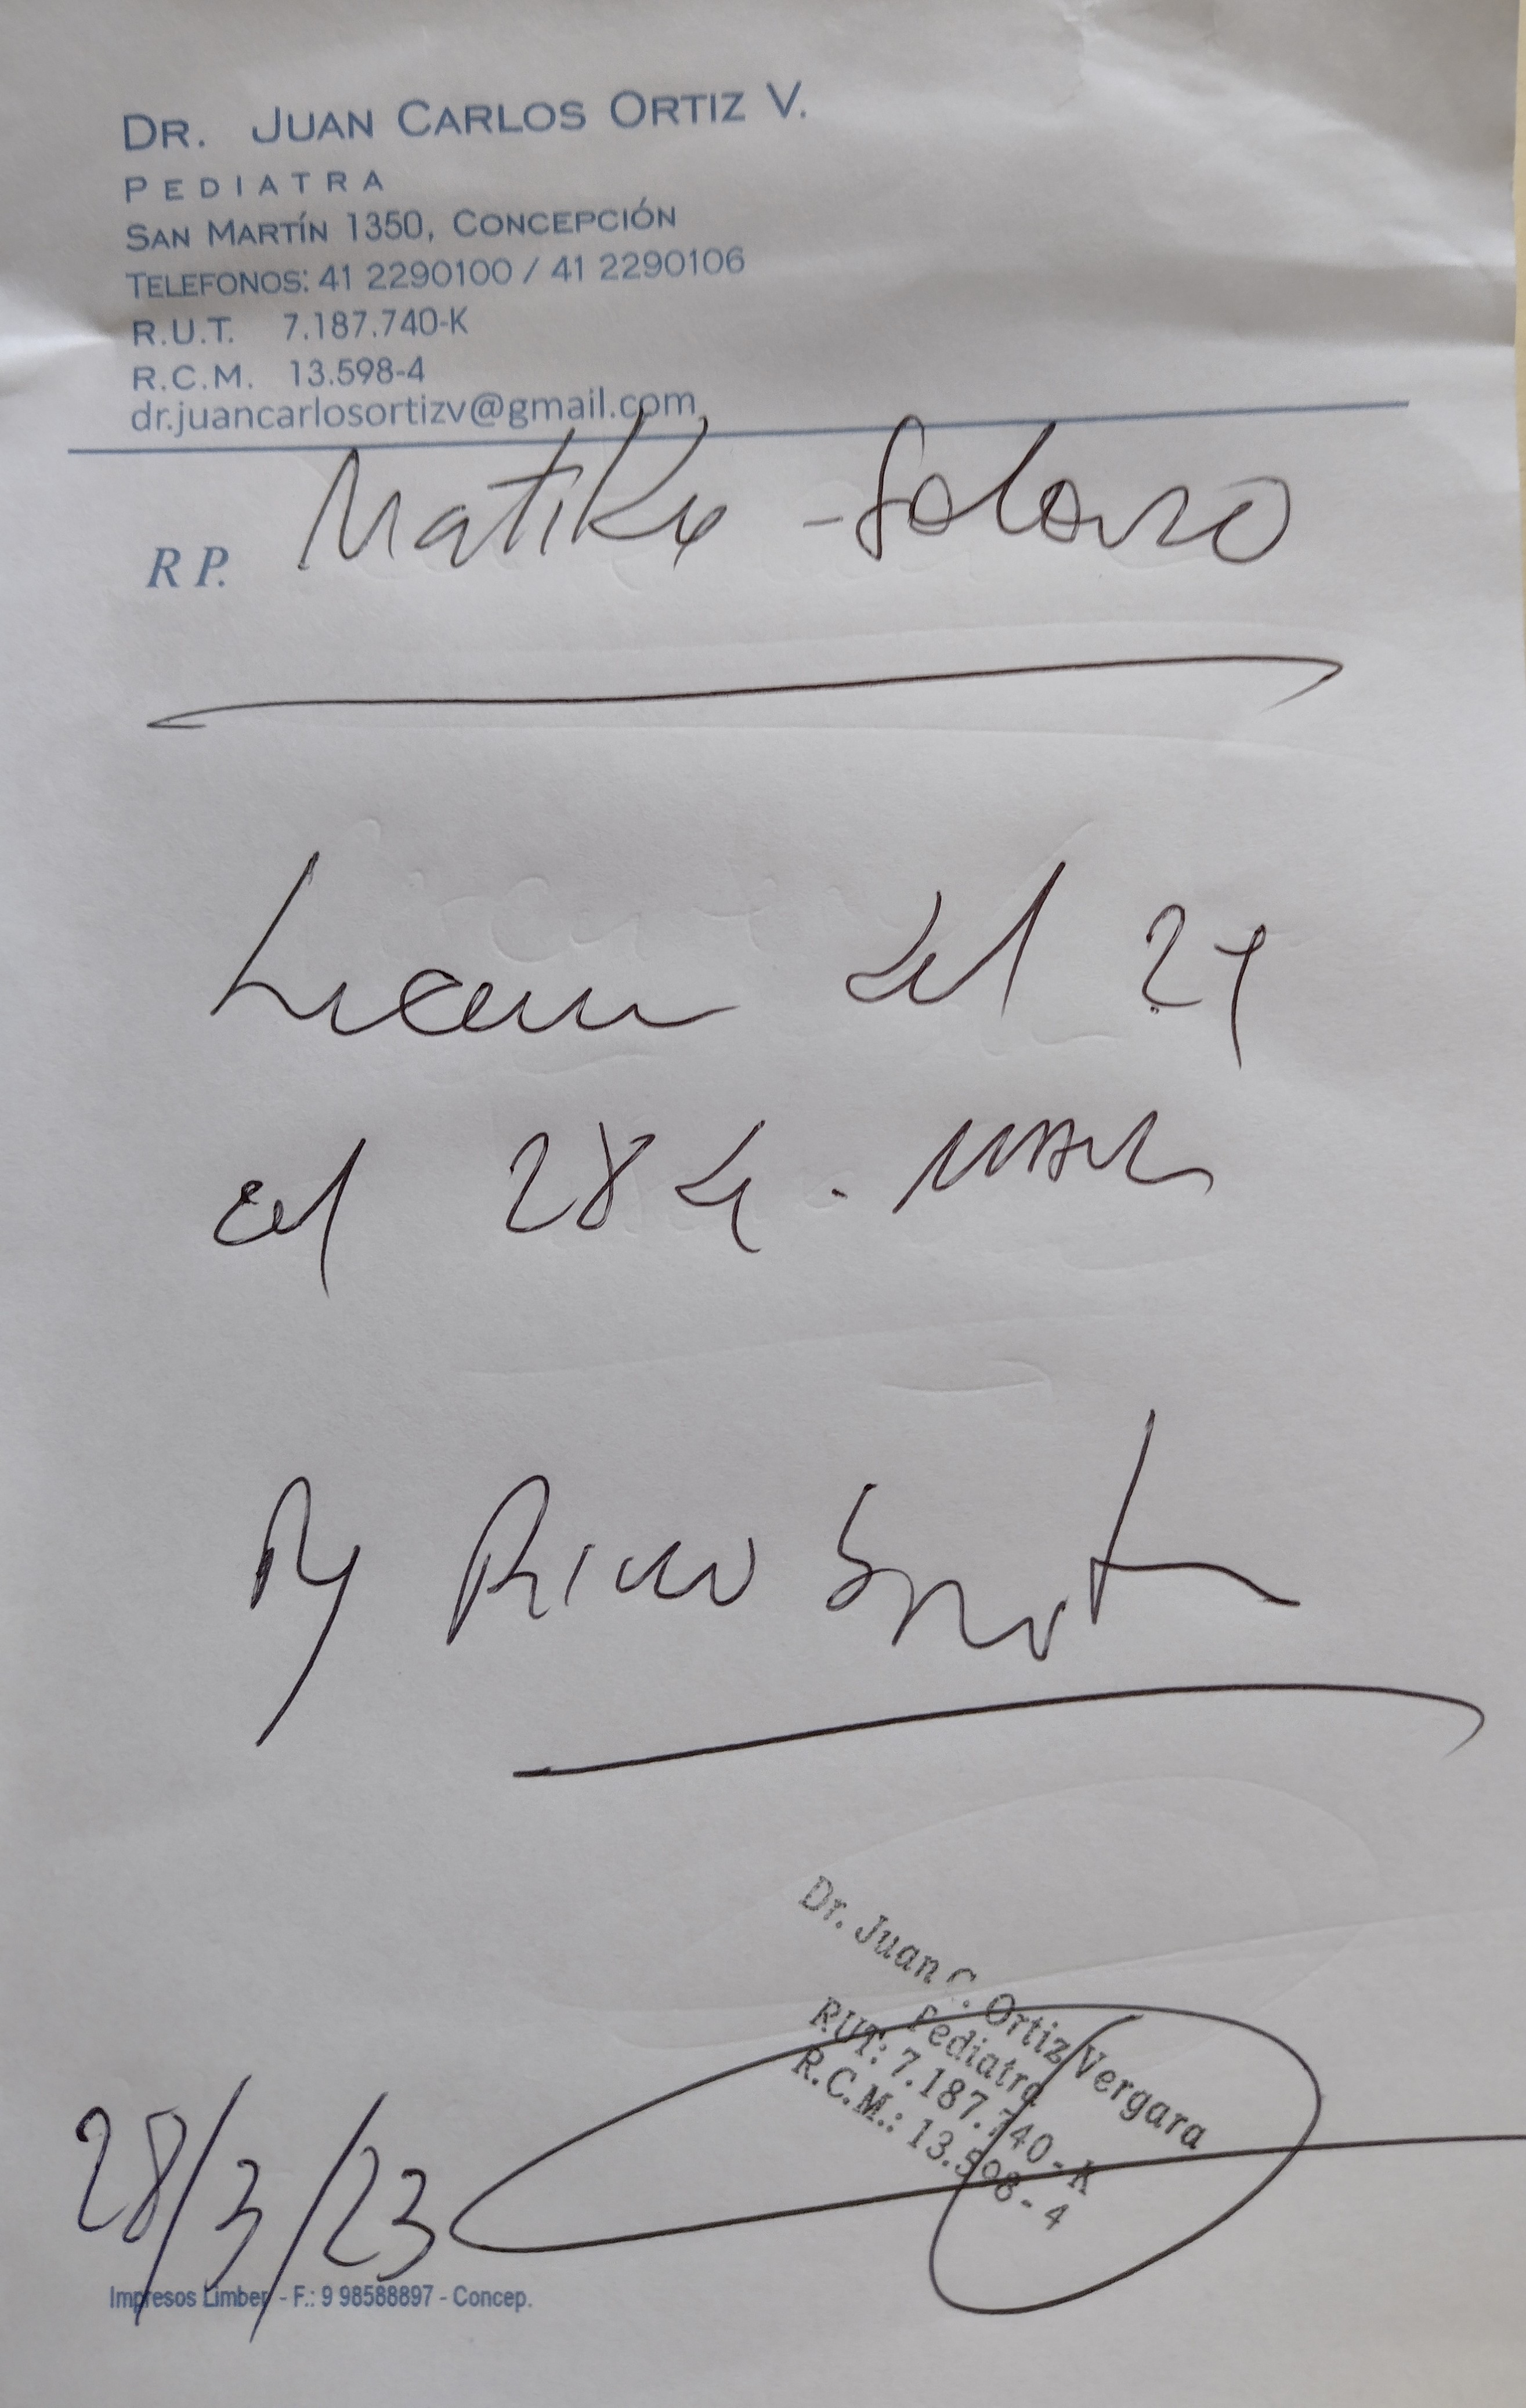 DR. JUAN CARLOS ORTIZ V.
PEDIATRA
SAN MARTÍN 1350, CONCEPCIÓN
TELEFONOS: 41 2290100 / 41 2290106
R.U.T. 7.187.740-K
R.C.M. 13.598-4
dr.juancarlosortizv@gmail.com
RP.
del 27
al 28 de
Dr. Juan C. Ortiz Vergara
Pediatra
RUT: 7.187.740-K
R.C.M.: 13.598-4
28/3/23
Impresos Limber - F.: 9 98588897 - Concep.